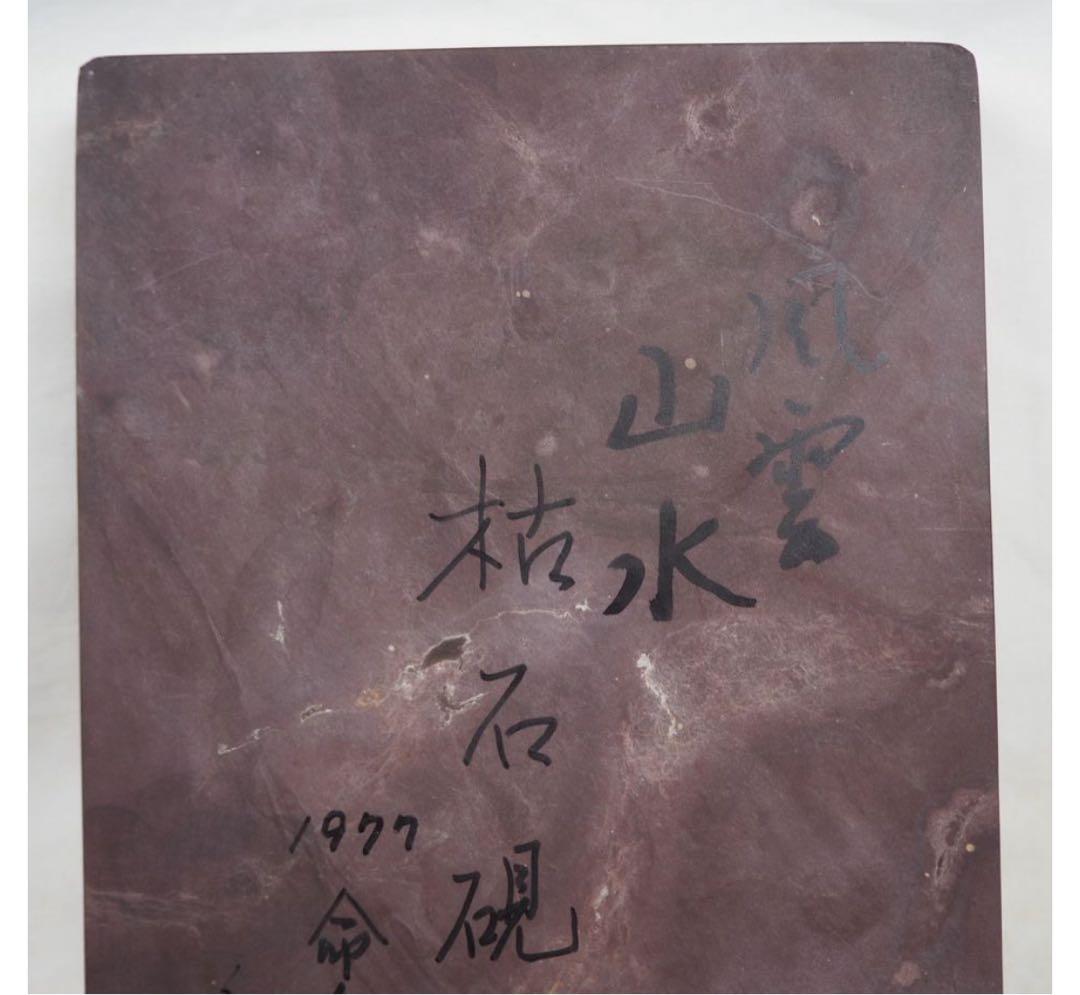 風雲
山水
枯石硯
1977
命